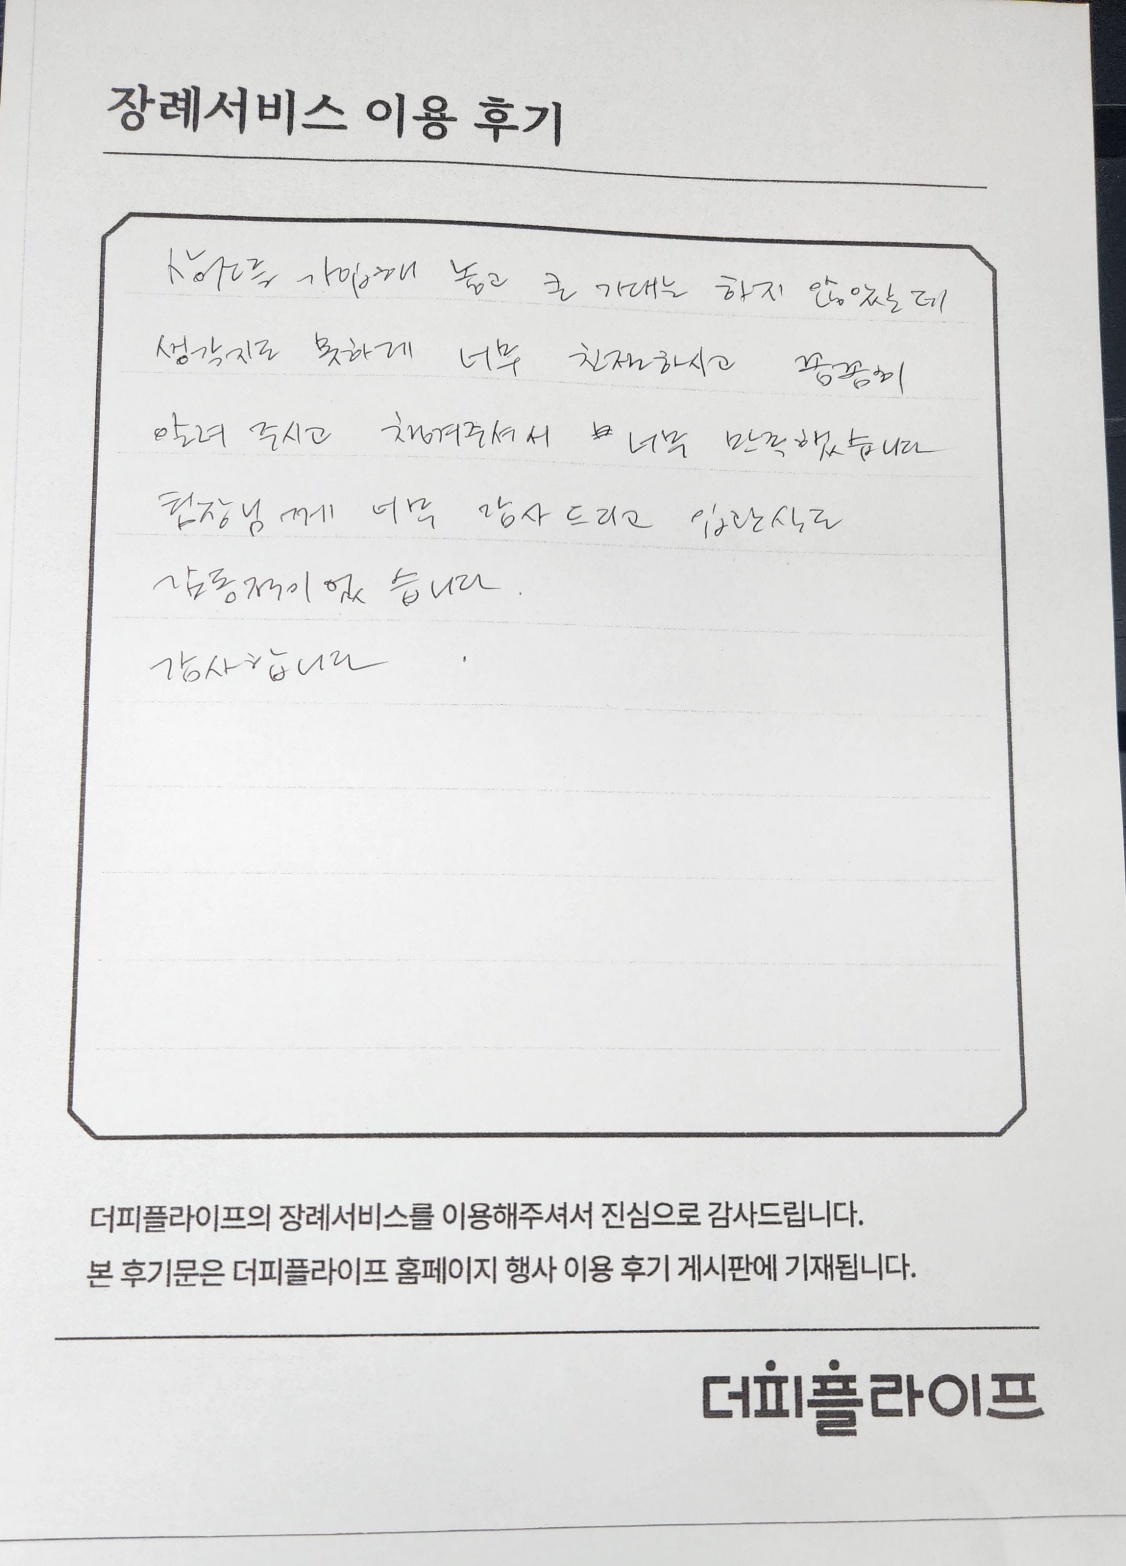 장례서비스 이용 후기
가입해 놓고 큰 기대는 하지 않았는데
생각지도 못하게 너무 친절하시고 꼼꼼히
알려 주시고 챙겨주셔서 너무 만족했습니다
팀장님께 너무 감사드리고 입관식도
감동적이었습니다.
감사합니다
더피플라이프의 장례서비스를 이용해주셔서 진심으로 감사드립니다.
본 후기문은 더피플라이프 홈페이지 행사 이용 후기 게시판에 기재됩니다.
더피플라이프